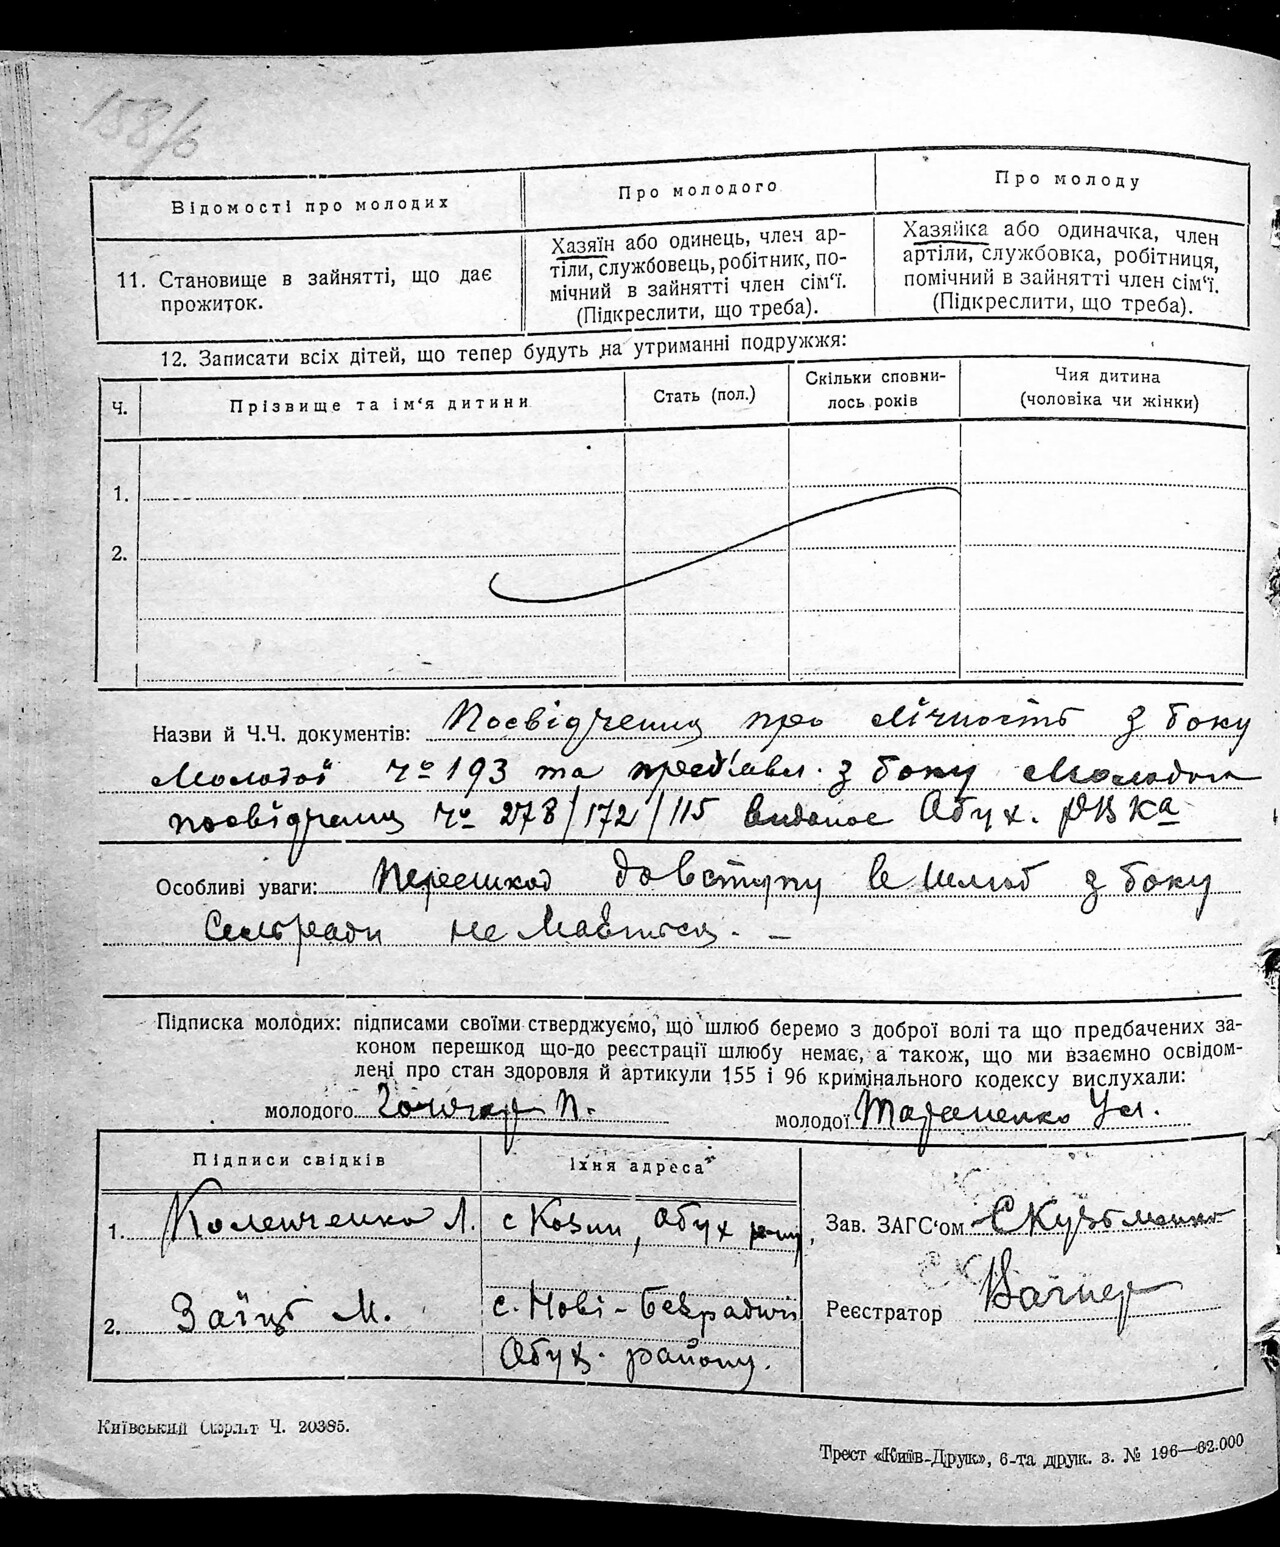 158/б
Відомості про молодих
Про молодого
Про молоду
11. Становище в зайнятті, що дає
прожиток.
Хазяїн або одинець, член ар-
тіли, службовець, робітник, по-
мічний в зайнятті член сім‘ї.
(Підкреслити, що треба).
Хазяйка або одиначка, член
артіли, службовка, робітниця,
помічний в зайнятті член сім‘ї.
(Підкреслити, що треба).
12. Записати всіх дітей, що тепер будуть на утриманні подружжя:
Ч.
Прізвище та ім‘я дитини
Стать (пол.)
Скільки сповни-
лось років
Чия дитина
(чоловіка чи жінки)
1.
2.
Назви й Ч.Ч. документів: Посвідчення про лічность з боку
Молодої Чо 193 та пред'явл. з боку Молодого
посвідчення Чо 278/172/115 видане Обух. РВКа
Особливі уваги: Перешкод до вступу в шлюб з боку
Сельради не мається. –
Підписка молодих: підписами своїми стверджуємо, що шлюб беремо з доброї волі та що предбачених за-
коном перешкод що-до реєстрації шлюбу немає, а також, що ми взаємно освідом-
лені про стан здоровля й артикули 155 і 96 кримінального кодексу вислухали:
молодого Гончар П.
молодої Тараненко Ул.
Підписи свідків
Їхня адреса
1. Коленченко Л.
с Козин, Обух р-ну,
2. Заїць М.
с. Нові-Безрадичі
Обух. району.
Зав. ЗАГС‘ом С Кузьменко
Реєстратор Вагнер
Київський Окрліт Ч. 20385.
Трест «Київ-Друк», 6-та друк. з. № 196—62.000